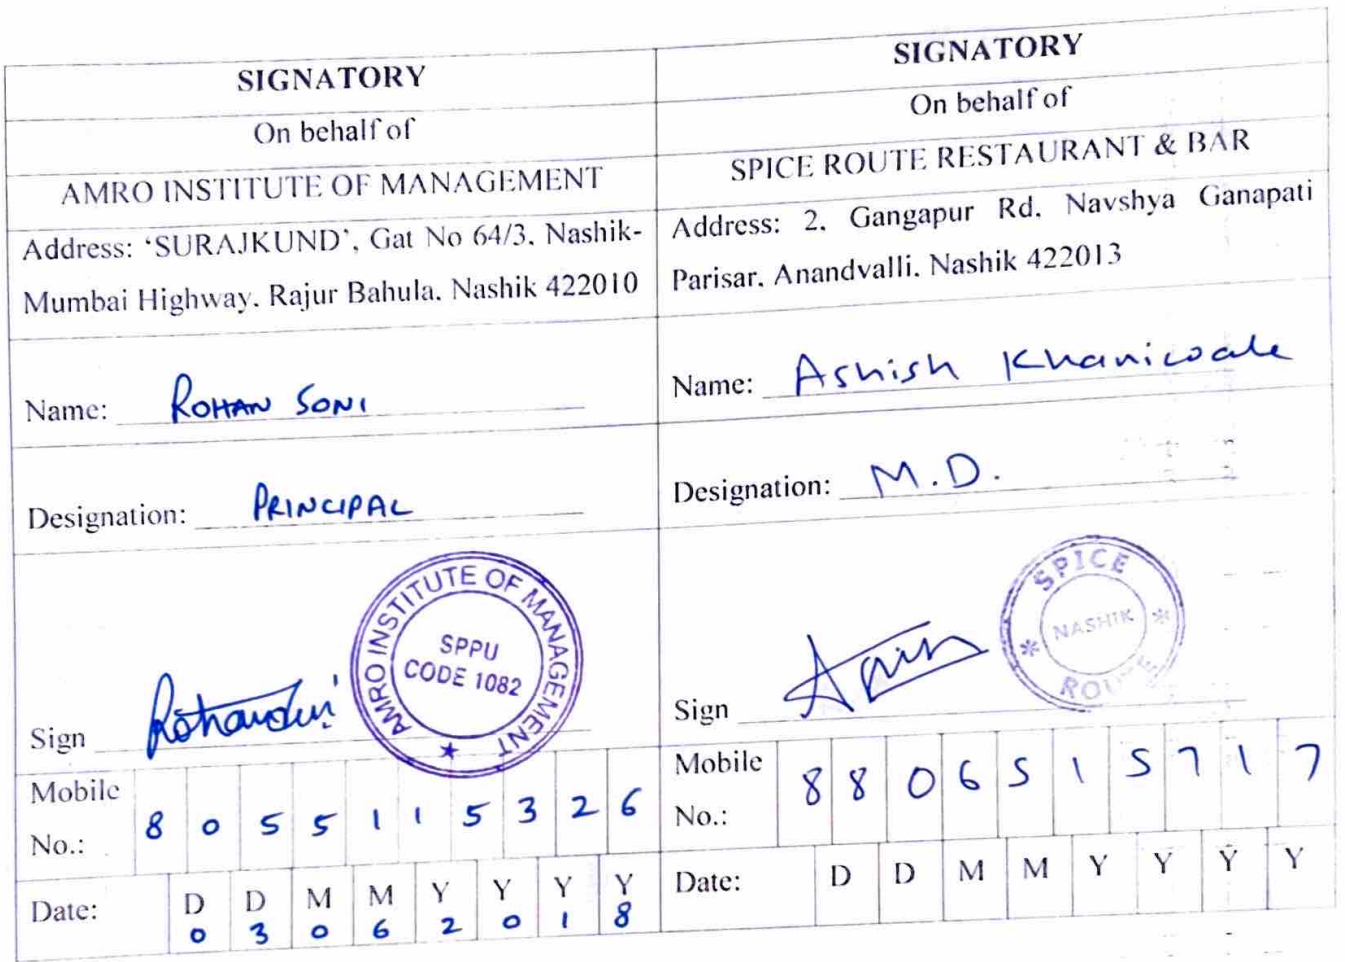 SIGNATORY
On behalf of
AMRO INSTITUTE OF MANAGEMENT
Address: ‘SURAJKUND’, Gat No 64/3, Nashik-
Mumbai Highway, Rajur Bahula, Nashik 422010
Name: ROHAN SONI
Designation: PRINCIPAL
AMRO INSTITUTE OF MANAGEMENT
SPPU
CODE 1082
Sign
Mobile
No.: 8 0 5 5 1 1 5 3 2 6
Date: D D M M Y Y Y Y
0 3 0 6 2 0 1 8
SIGNATORY
On behalf of
SPICE ROUTE RESTAURANT & BAR
Address: 2, Gangapur Rd, Navshya Ganapati
Parisar, Anandvalli, Nashik 422013
Name: Ashish Khanicoale
Designation: M.D.
SPICE
NASHIK
ROUTE
Sign
Mobile
No.: 8 8 0 6 5 1 5 7 1 7
Date: D D M M Y Y Y Y